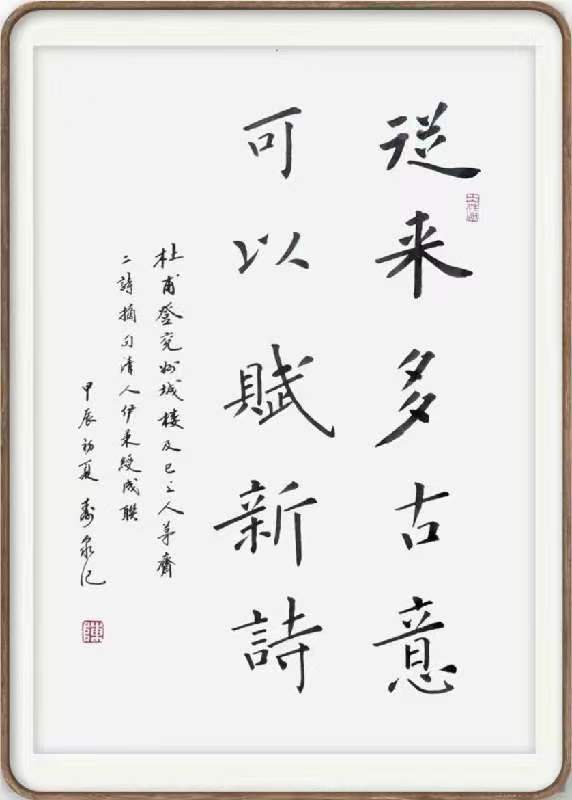 從来多古意
可以賦新詩
杜甫登兖州城樓及巳上人茅齋
二詩摘句清人伊秉綬成聯
甲辰初夏 壽泉记